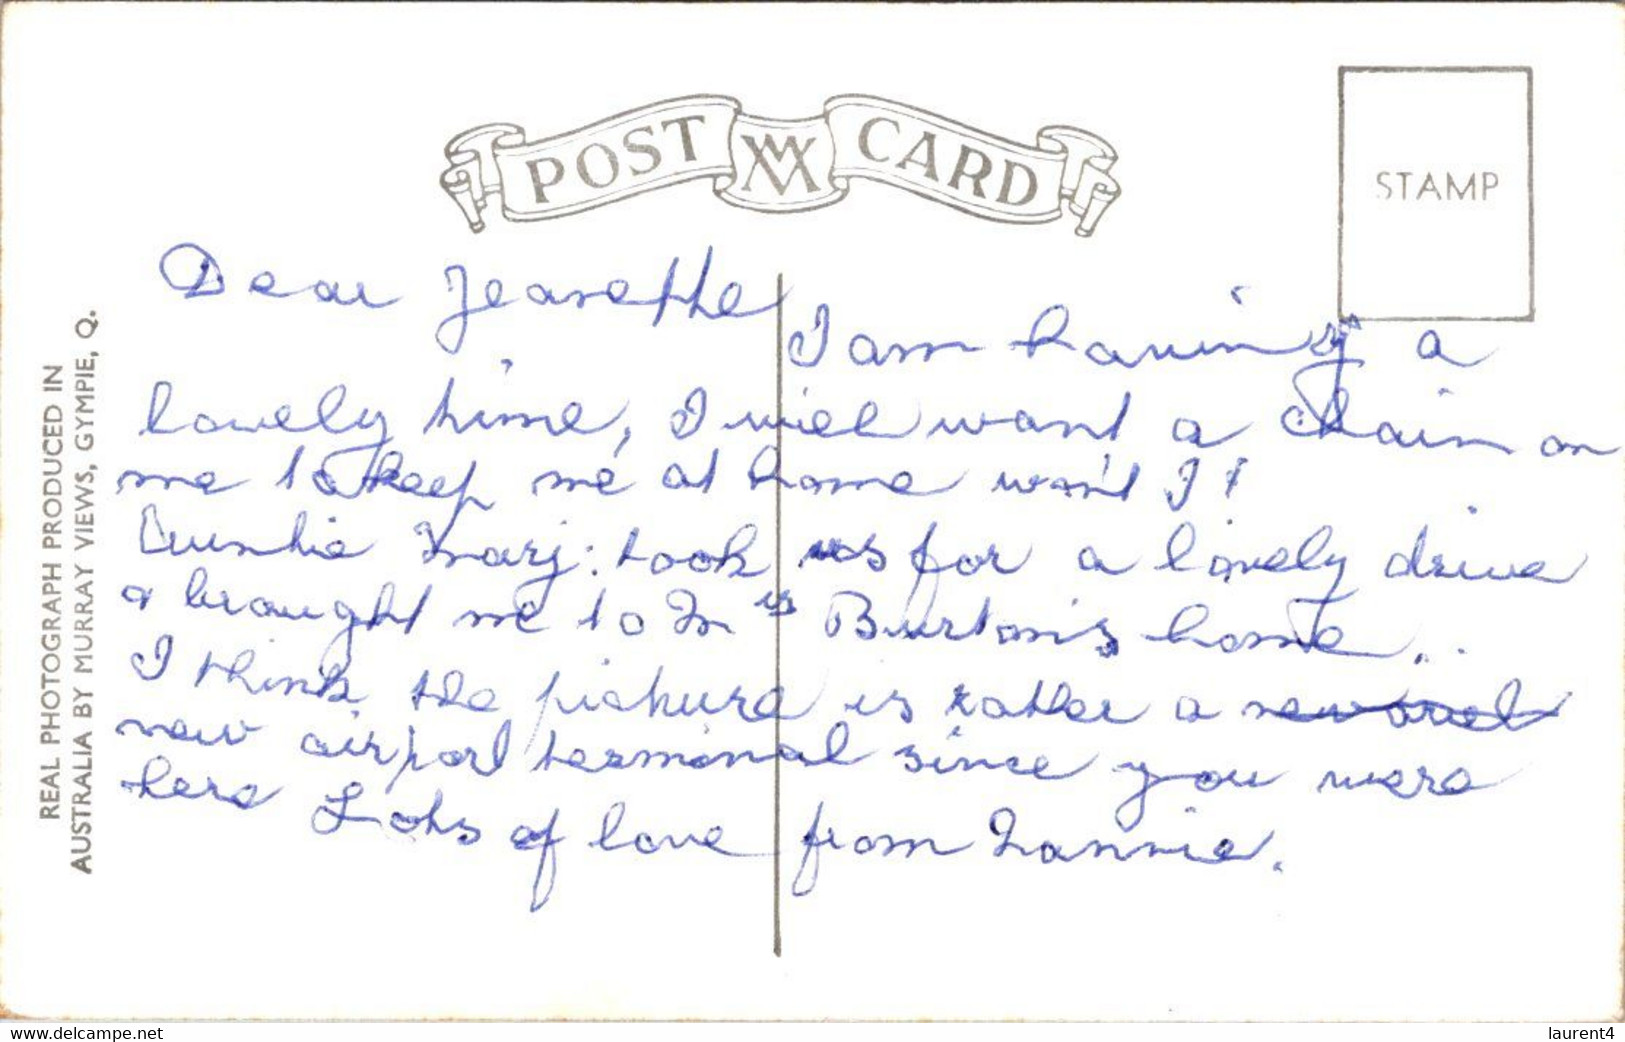 POST CARD
STAMP
Dear Jeanette
I am having a
lovely time, I will want a chain on
me to keep me at home won't I!
Auntie Marj: took us for a lovely drive
& brought me to Mrs Burton's home..
I think the picture is rather a
new airport terminal since you were
here Lots of love from Nannie.
REAL PHOTOGRAPH PRODUCED IN
AUSTRALIA BY MURRAY VIEWS, GYMPIE, Q.
www.delcampe.net
laurent4